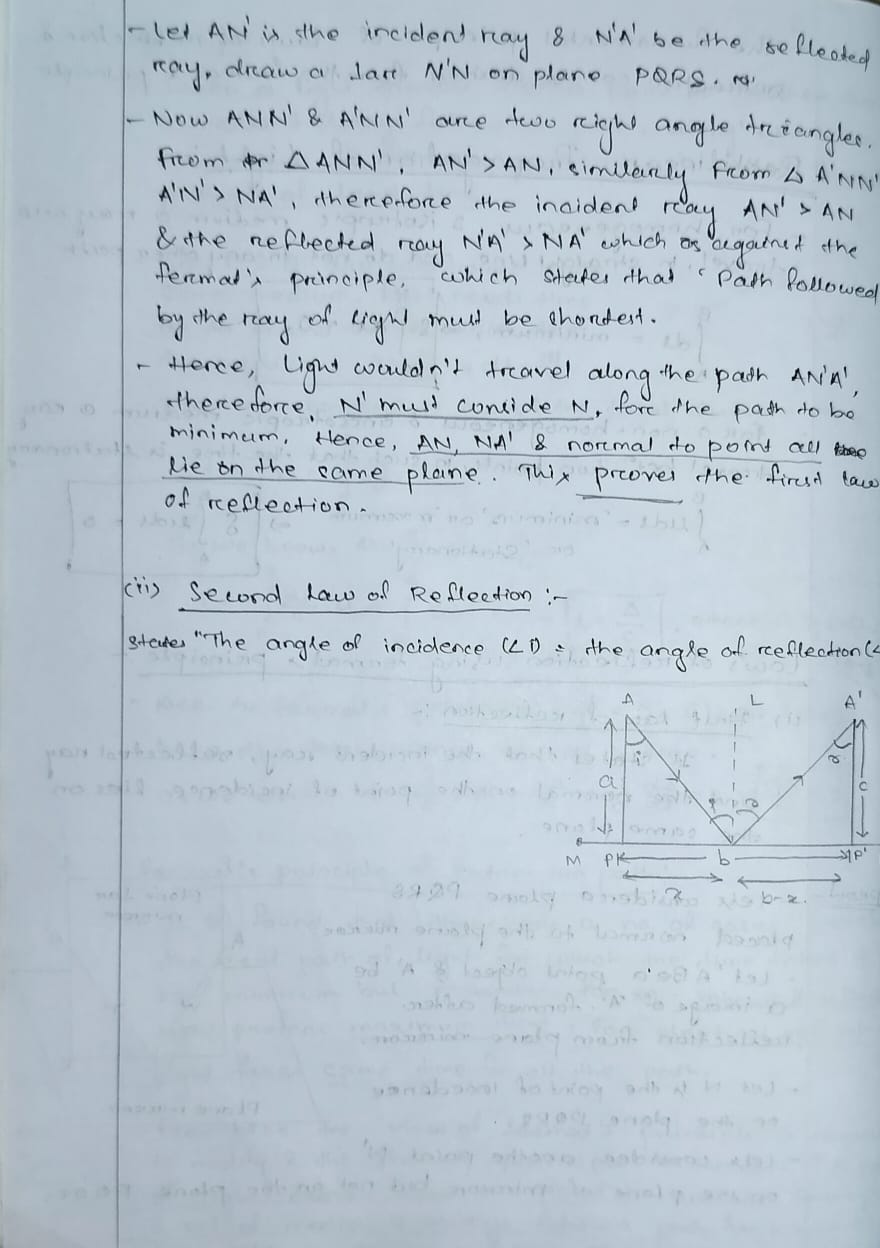 - Let AN' is the incident ray & N'A' be the reflected
ray, draw a N'N on plane PQRS.
- Now ANN' & A'NN' are two right angle triangles.
From △ANN', AN' > AN, similarly From △ A'NN'
A'N' > NA', therefore the incident ray AN' > AN
& the reflected ray N'A' > NA' which is against the
fermat's principle, which states that " Path followed
by the ray of light must be shortest.
- Hence, Light wouldn't travel along the path AN'A',
therefore, N' must concide N, for the path to be
minimum. Hence, AN, NA' & normal to point all
lie on the same plane. This proves the first law
of reflection.
(ii) Second Law of Reflection :-
States "The angle of incidence (∠i) = the angle of reflection (∠
A L A'
i r
a i r c
M P b P'
x b-x.